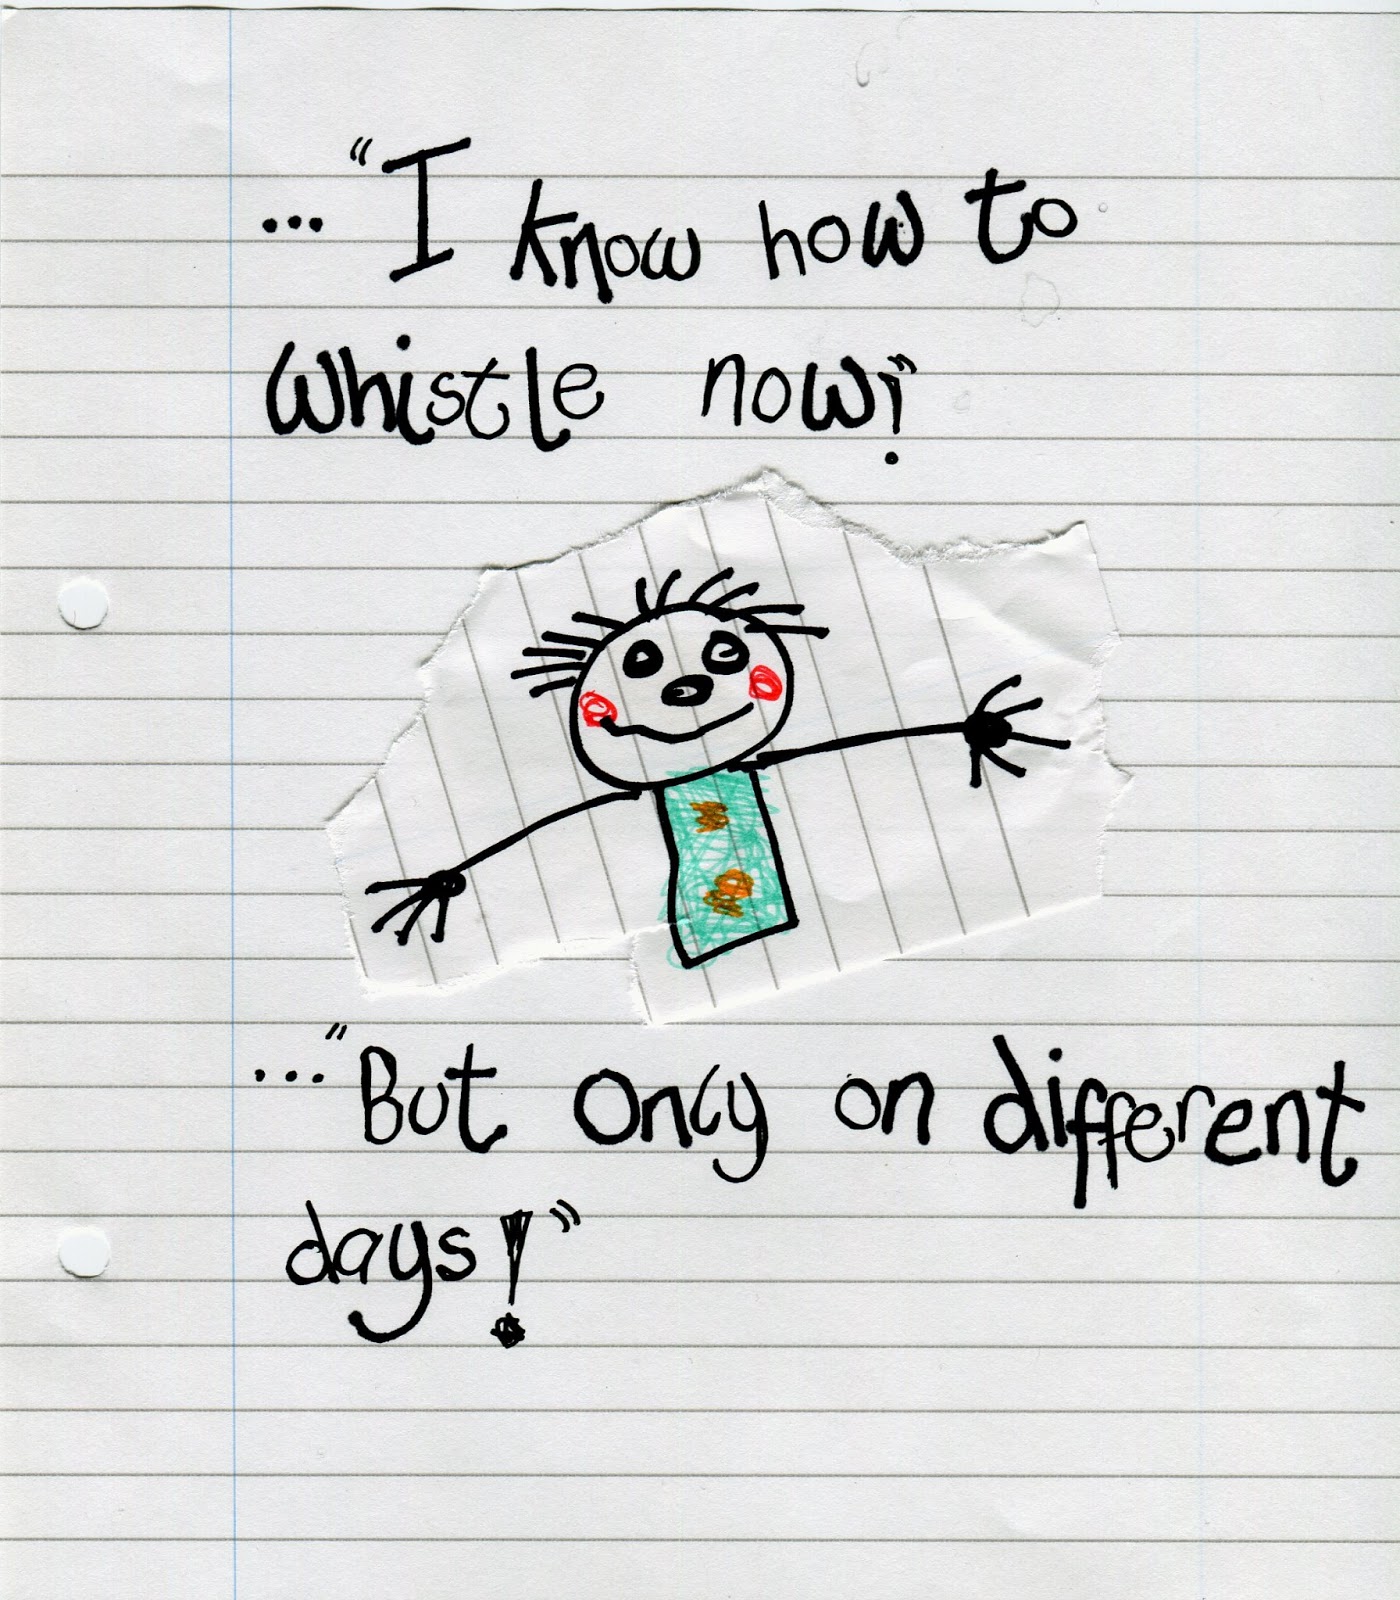 ... "I know how to
whistle now!"
... "But only on different
days!"